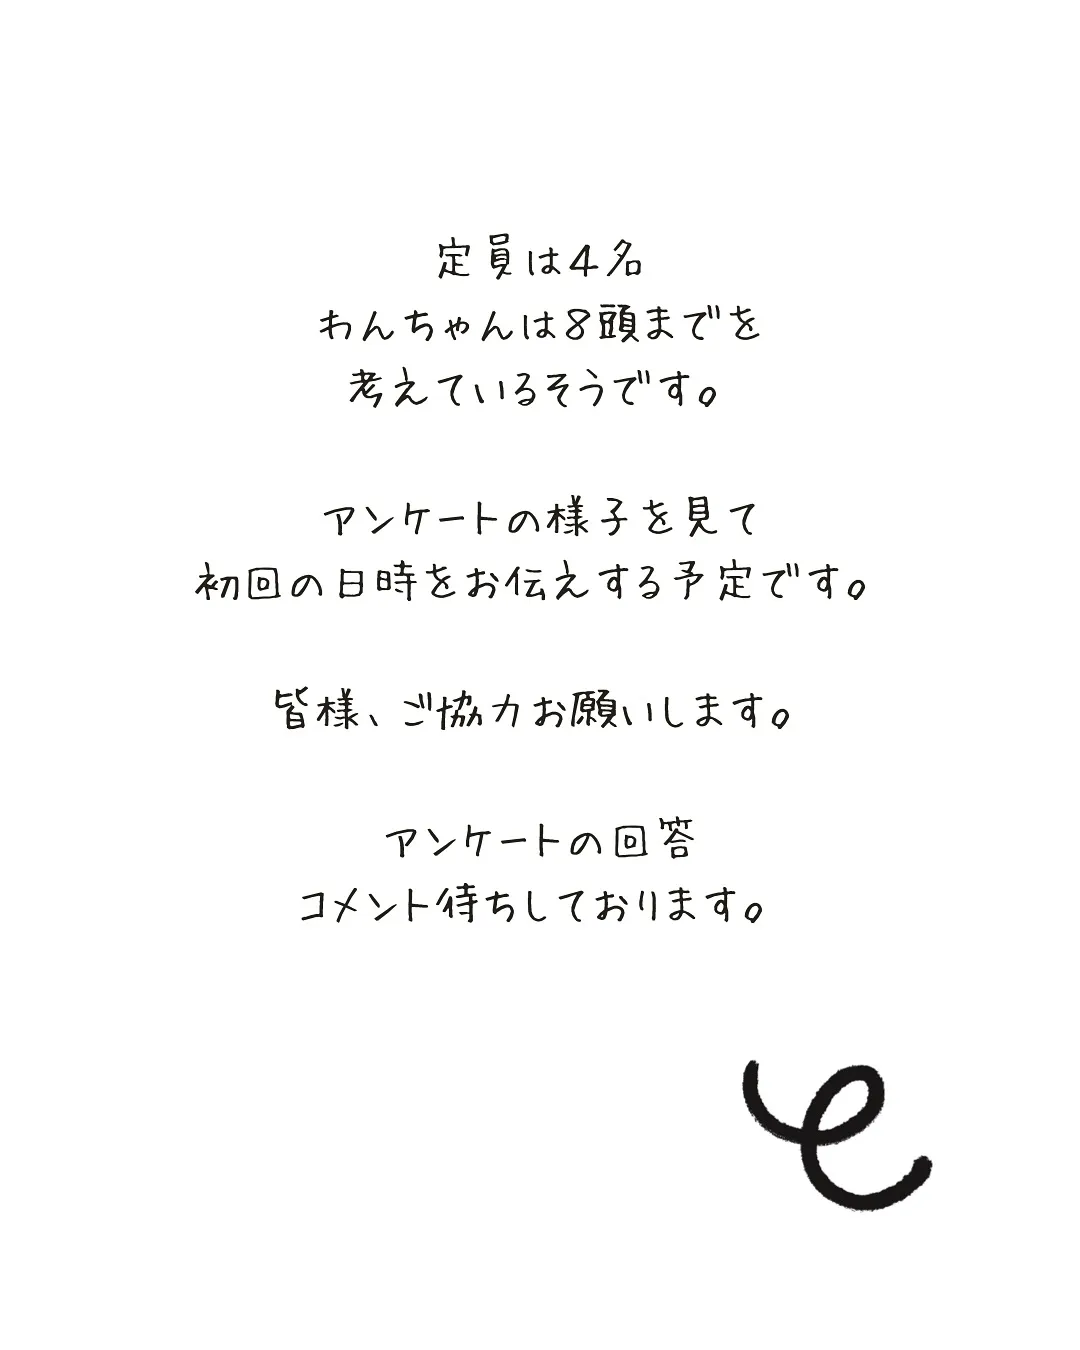 定員は4名
わんちゃんは8頭までを
考えているそうです。
アンケートの様子を見て
初回の日時をお伝えする予定です。
皆様、ご協力お願いします。
アンケートの回答
コメント待ちしております。